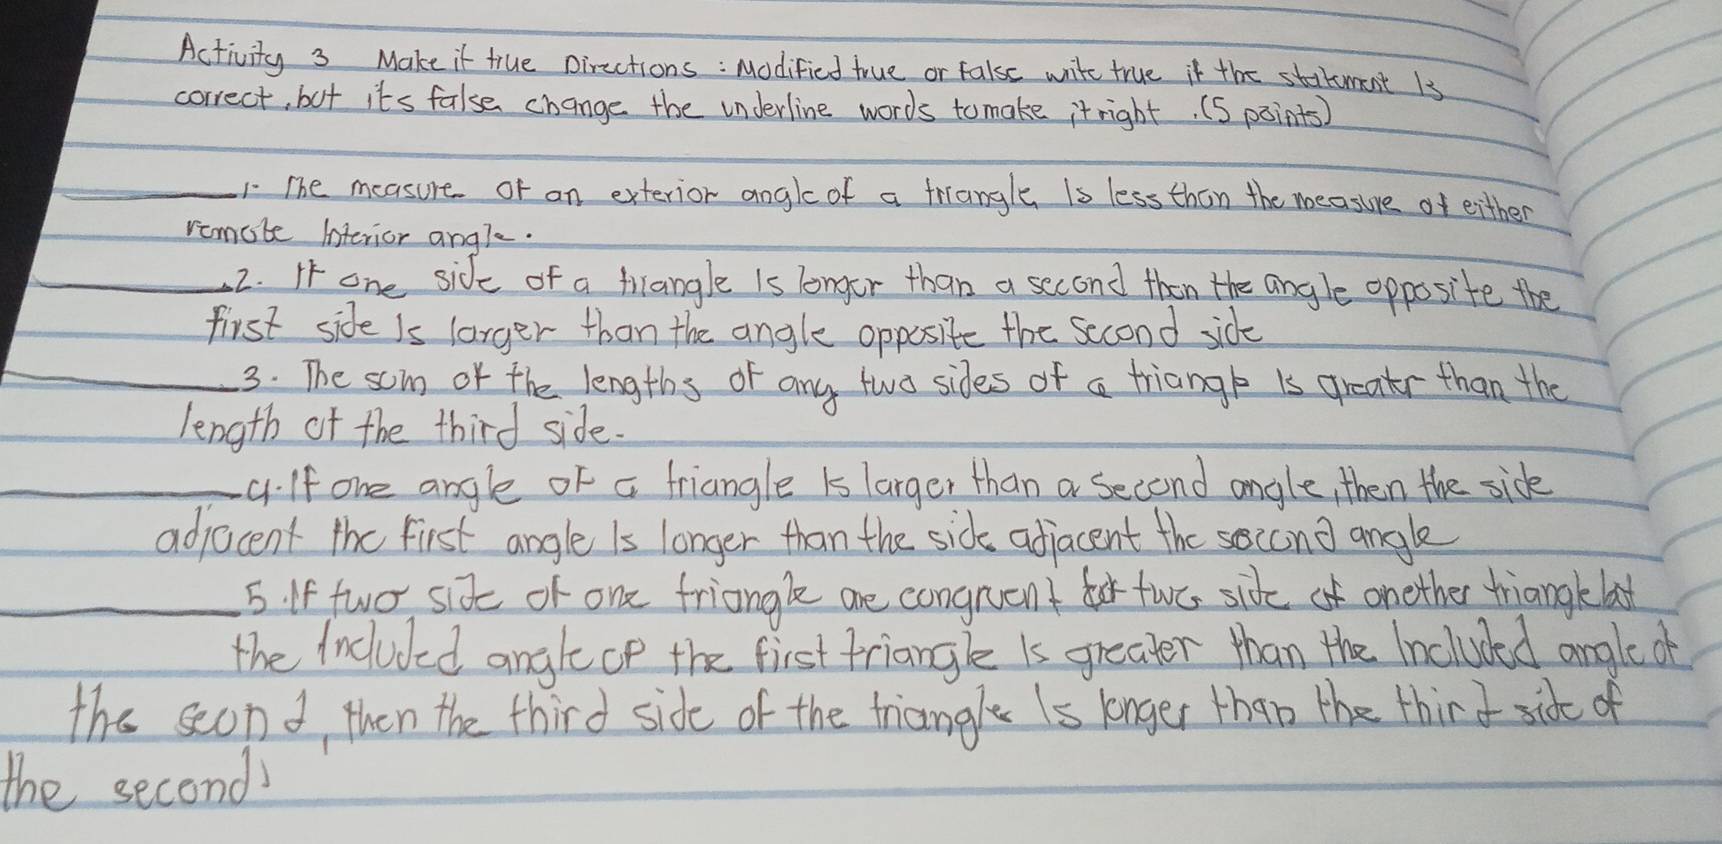 Activity 3 Make it true Directions : Modified true or false write true if the statement is
correct, but its false change the underline words to make it right. (5 points)
1. The measure of an exterior angle of a triangle is less than the measure of either
remote interior angle.
2. If one side of a triangle is longer than a second then the angle opposite the
first side is larger than the angle opposite the second side
3. The sum of the lengths of any two sides of a triangle is greater than the
length of the third side.
4. If one angle of a triangle is larger than a second angle, then the side
adjacent the first angle is longer than the side adjacent the second angle
5. If two side of one triangle are congruent two side of another triangle but
the included angle of the first triangle is greater than the included angle of
the secon d, then the third side of the triangle is longer than the third side of
the second